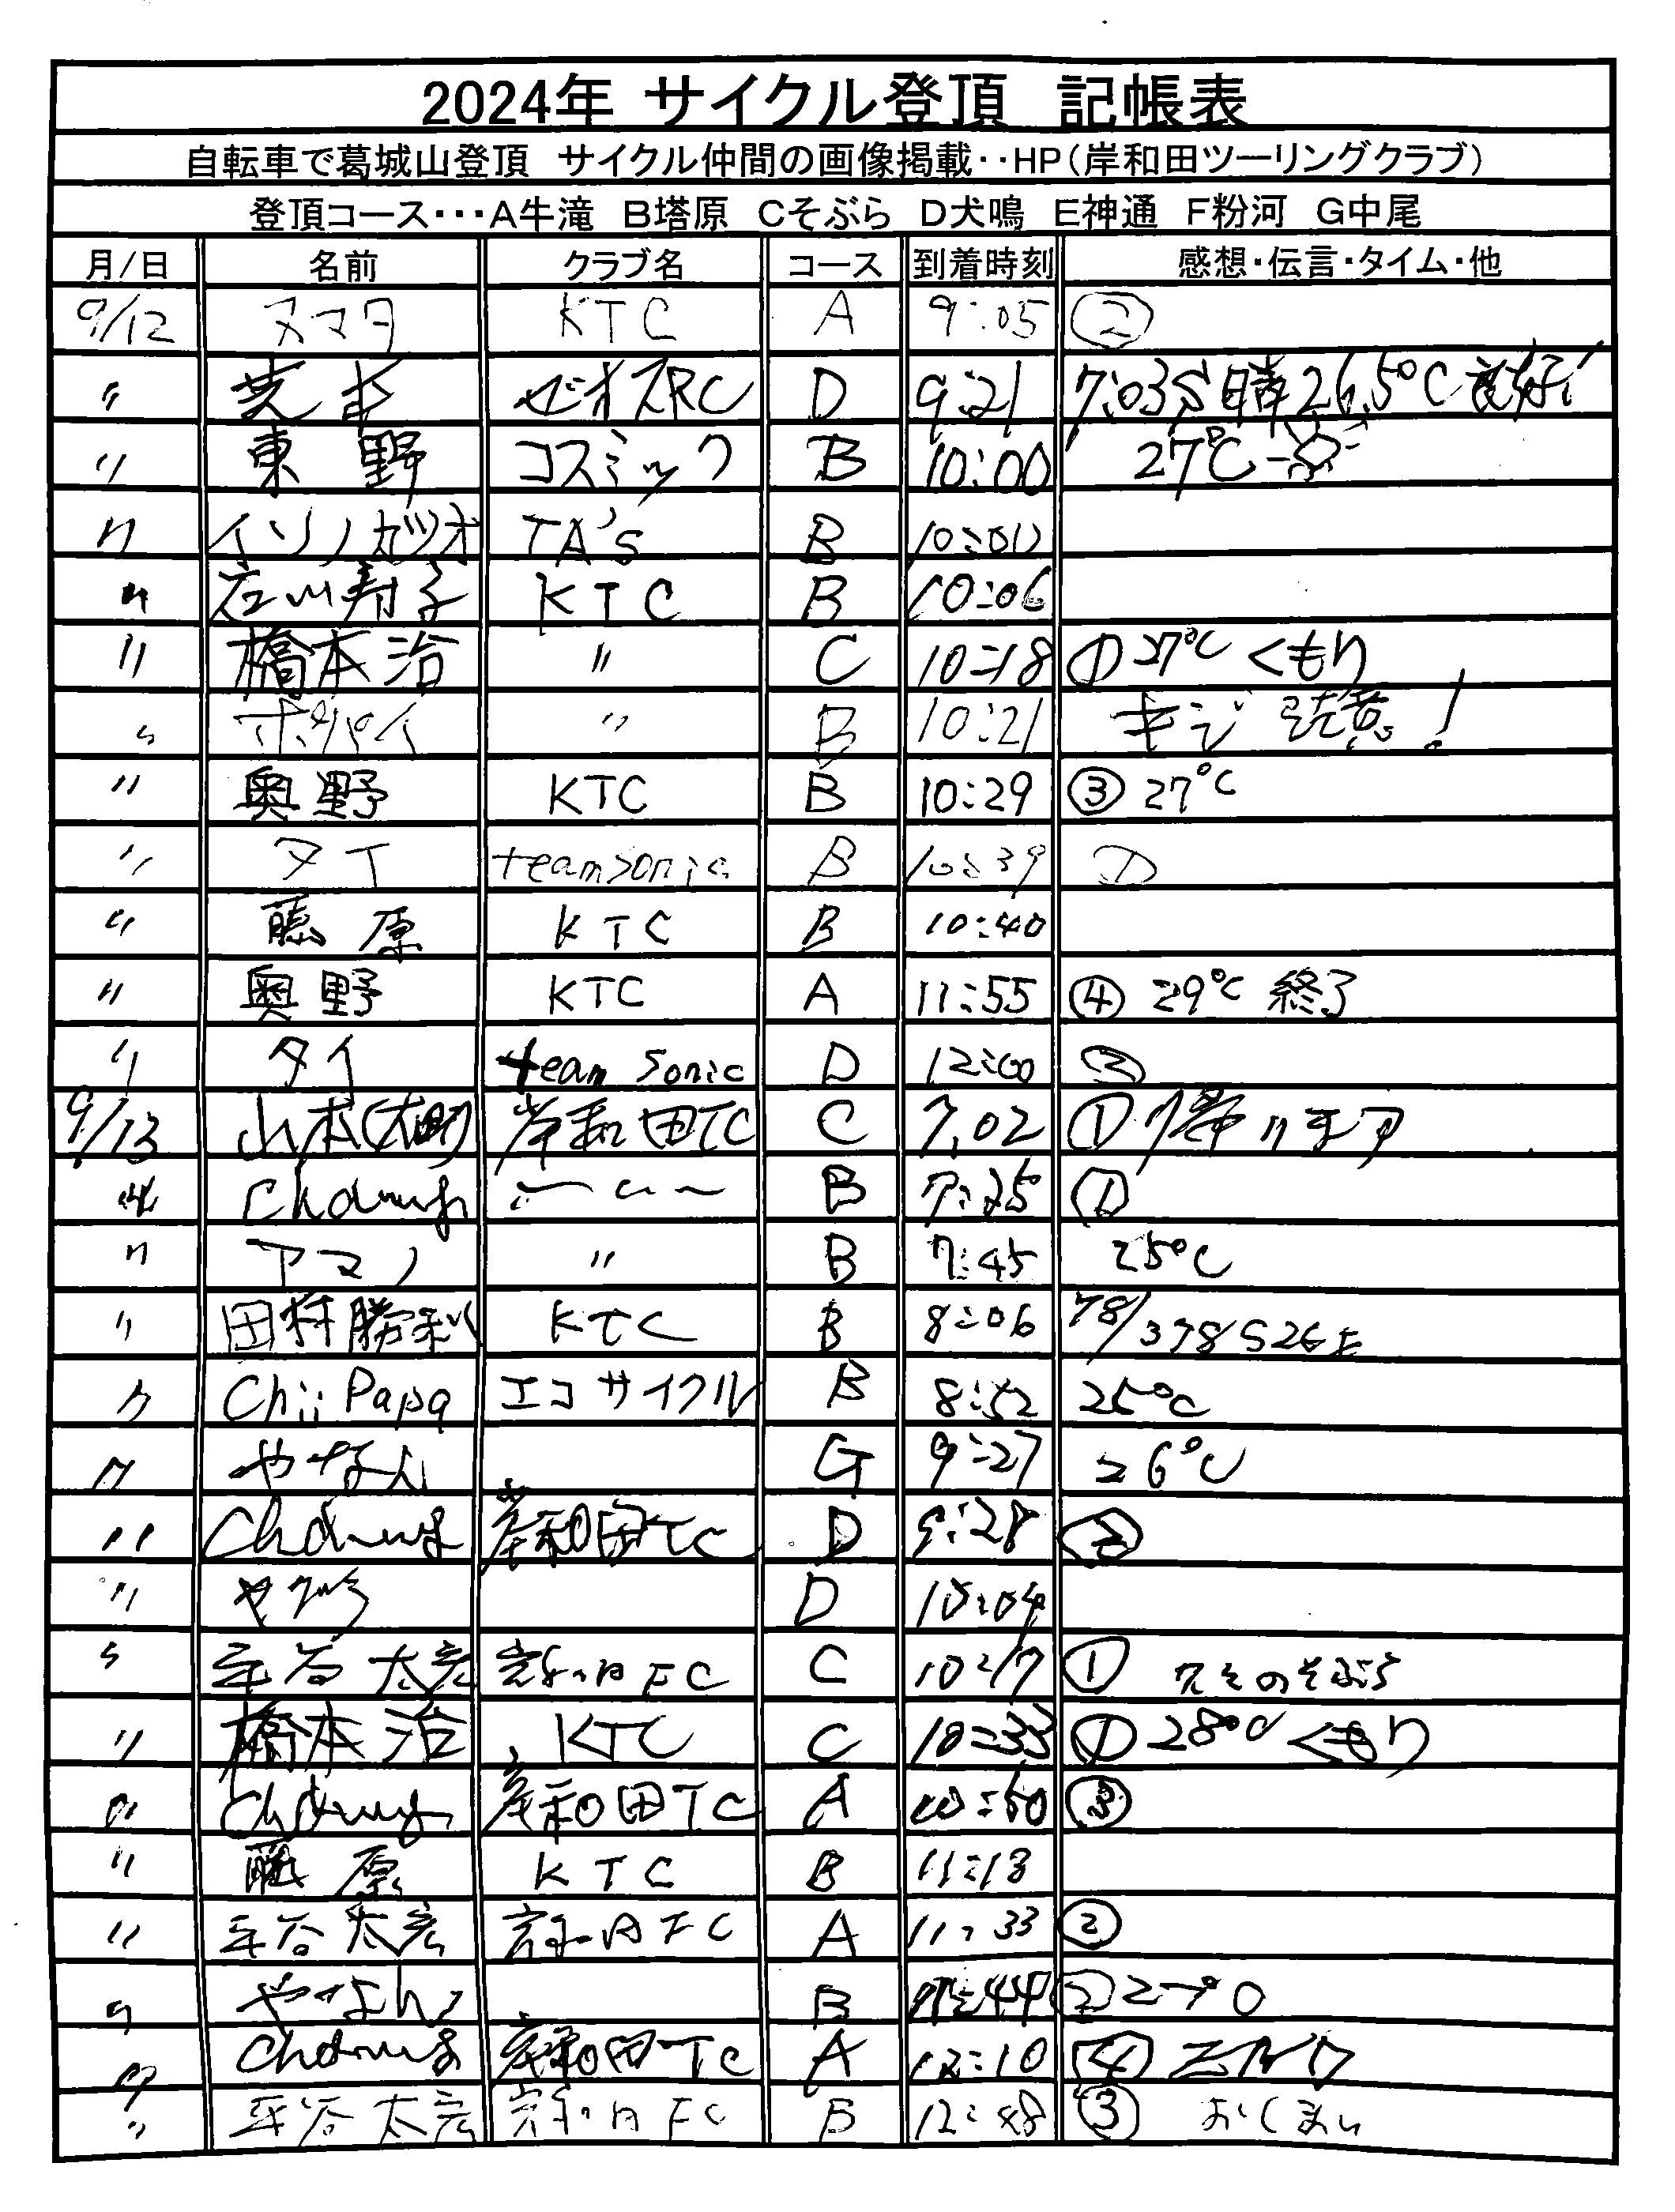 2024年 サイクル登頂 記帳表
自転車で葛城山登頂 サイクル仲間の画像掲載‥HP(岸和田ツーリングクラブ)
登頂コース・・・A牛滝 B塔原 Cそぶら D犬鳴 E神通 F粉河 G中尾
月/日 名前 クラブ名 コース 到着時刻 感想・伝言・タイム・他
9/12 ヌマタ KTC A 9:05 ②
〃 D 9:21 7:03S 晴 26.5℃
〃 東野 コスミック B 10:00 27℃
〃 イソノカツオ TA's B 10:00
〃 石川寿子 KTC B 10:06
〃 橋本治 〃 C 10:18 ① 27℃ くもり
〃 ポパイ 〃 B 10:21 キジ !
〃 奥野 KTC B 10:29 ③ 27℃
〃 タイ team sonic B 10:39 ①
〃 藤原 KTC B 10:40
〃 奥野 KTC A 11:55 ④ 29℃ 終了
〃 タイ team sonic D 12:00 ②
9/13 山本 岸和田TC C 7,02 ①
〃 B 7:25 ①
〃 アマノ 〃 B 7:45 25℃
〃 田村勝利 KTC B 8:06 78/378 S26生
〃 Chii Papa エコサイクル B 8:52 25℃
〃 G 9:27 26℃
〃 岸和田TC D 9:28 ②
〃 D 10:04
〃 平谷太宏 FC C 10:17 ①
〃 橋本治 KTC C 10:33 ① 28℃ くもり
〃 岸和田TC A 10:50 ③
〃 藤原 KTC B 11:13
〃 平谷太宏 FC A 11:33 ②
〃 B 11:44 ②
〃 岸和田TC A 12:10 ④
〃 平谷太宏 FC B 12:48 ③ おしまい